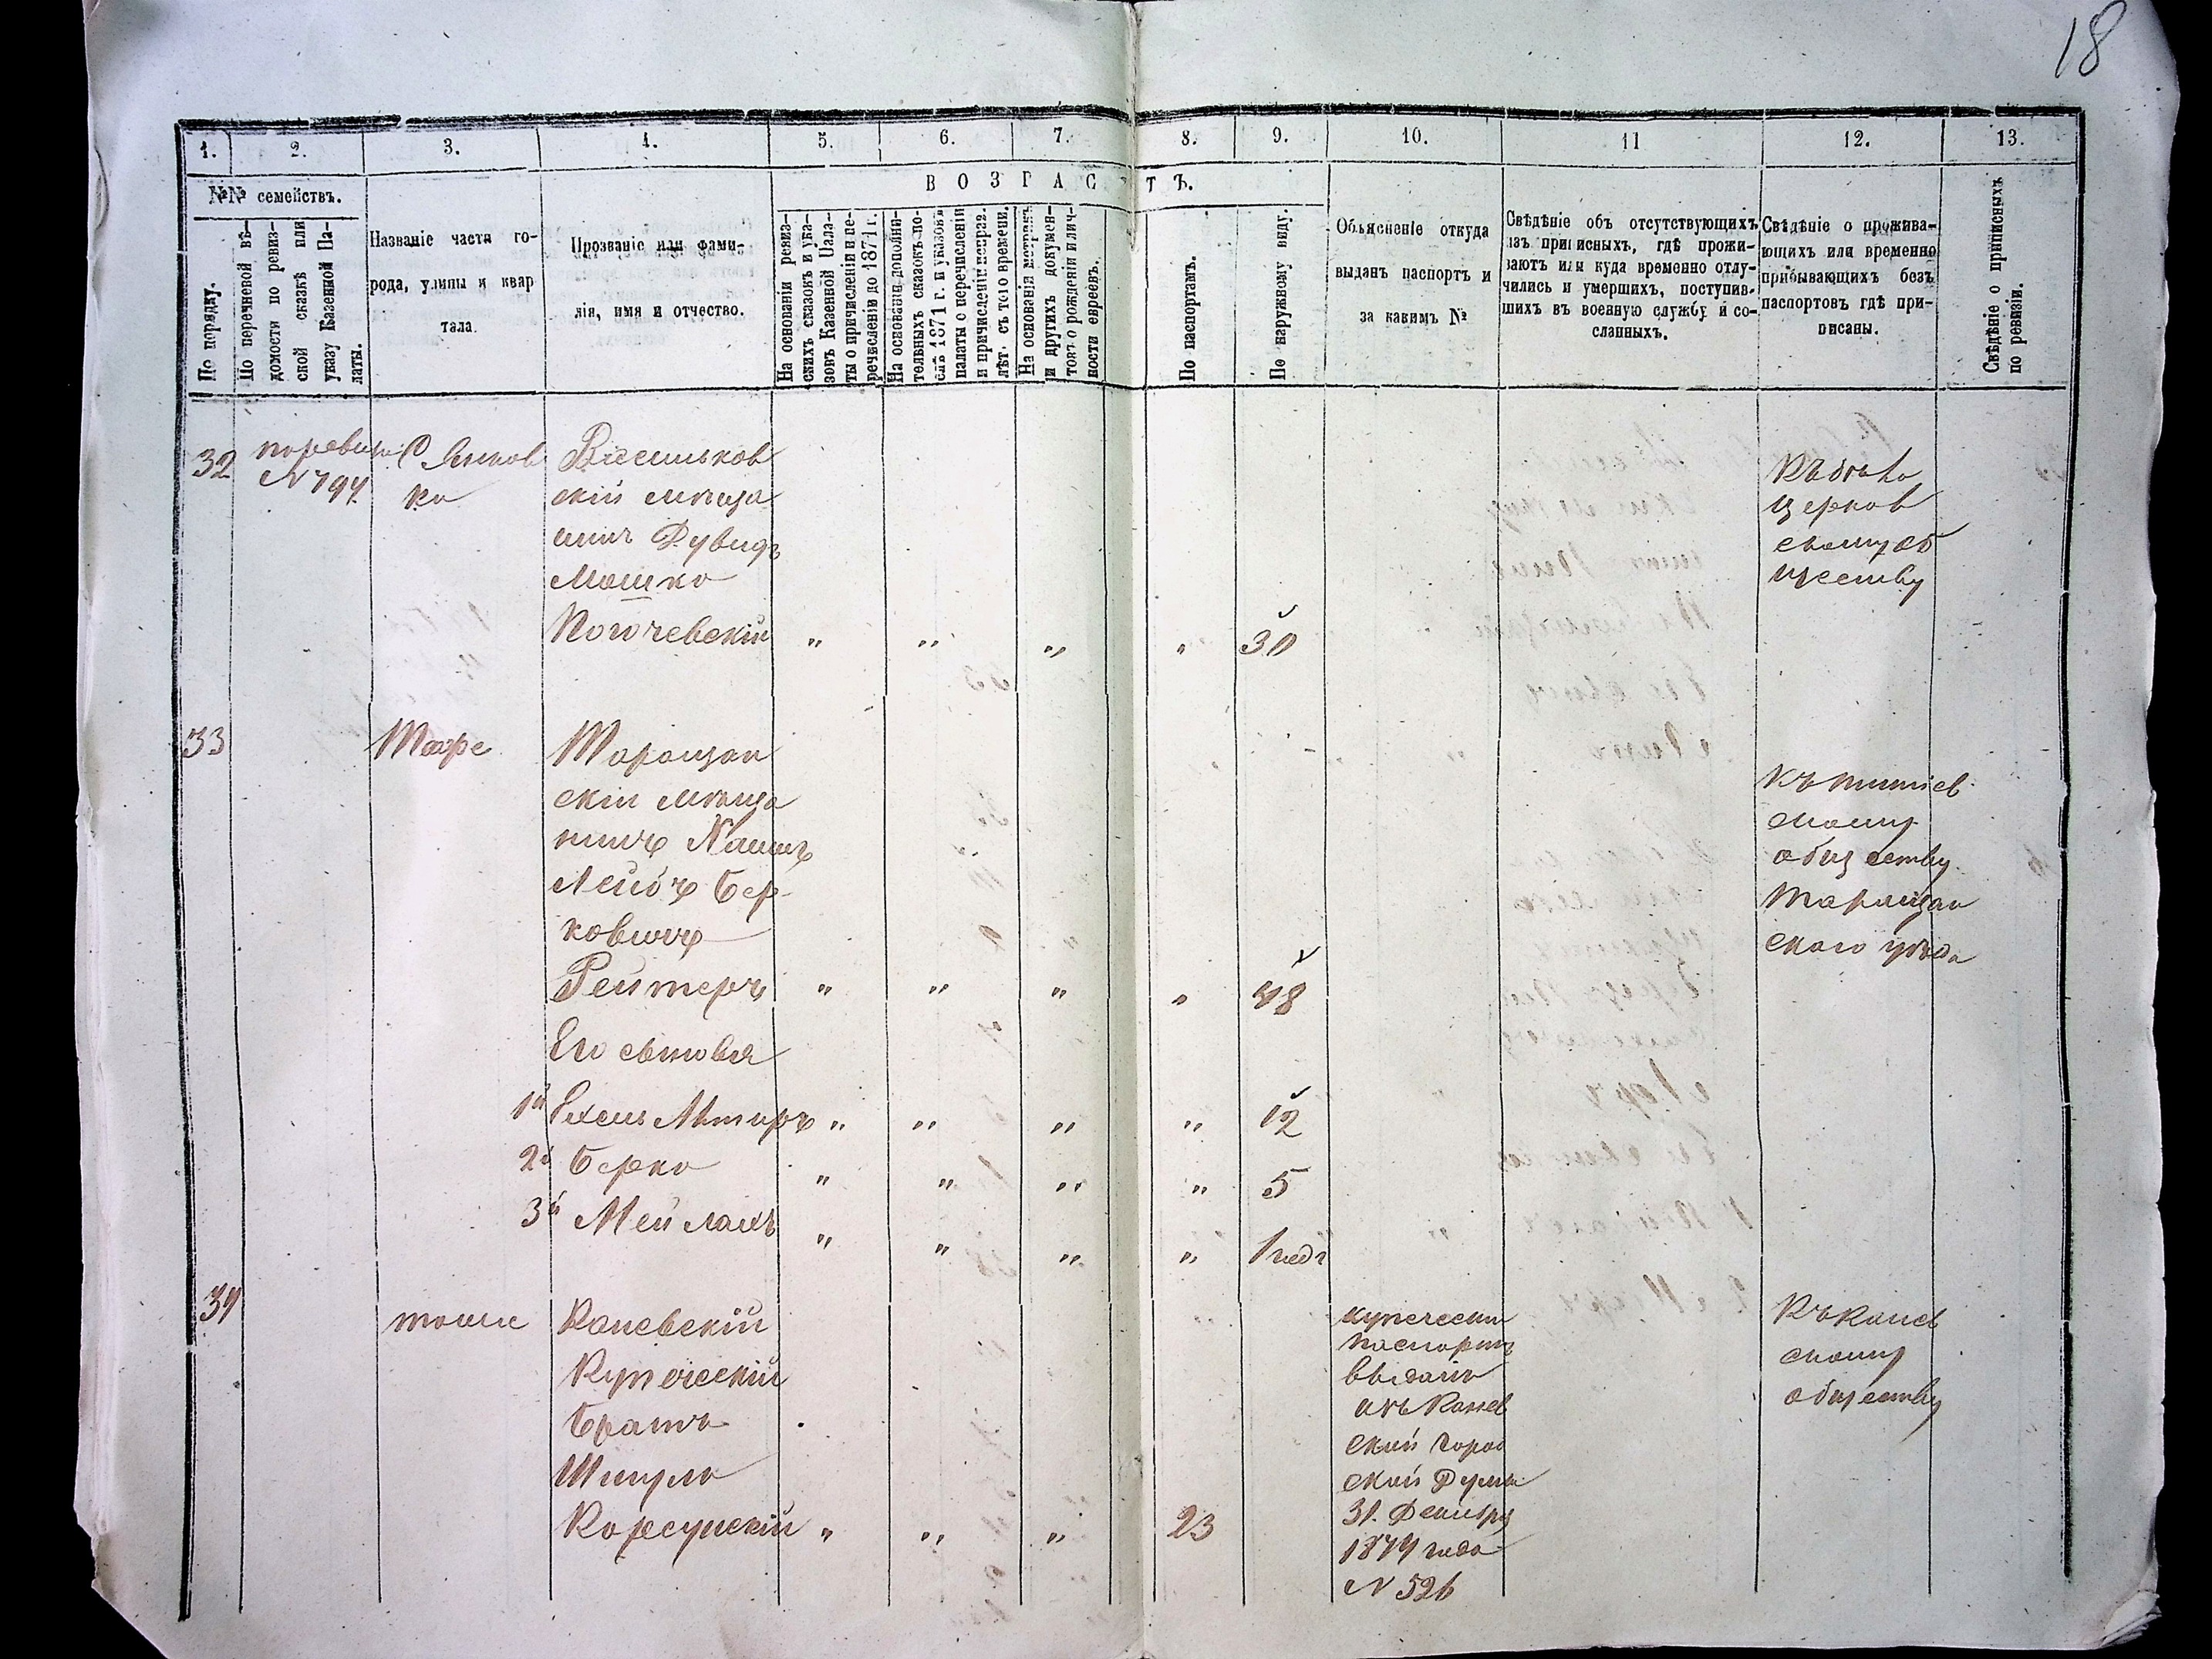 18
1. 2. 3. 4. 5. 6. 7. 8. 9. 10. 11 12. 13.
№№ семействъ.
По порядку.
По перечневой вѣ-
домости по ревиз-
ской сказкѣ или
указу Казенной Па-
латы.
Названіе части го-
рода, улицы и квар
тала.
Прозваніе или фами-
лія, имя и отчество.
ВОЗРАСТЪ.
На основаніи ревиз-
скихъ сказокъ и ука-
зовъ Казенной Пала-
ты о причисленіи и пе-
речисленіи до 1871 г.
На основаніи дополни-
тельныхъ сказокъ по-
слѣ 1871 г. и указовъ
палаты о перечисленіи
и причисленіи неправ.
лѣт. съ того времени.
На основаніи метрикъ
и другихъ докумен-
товъ о рожденіи и лич-
ности евреевъ.
По паспортамъ.
По наружному виду.
Объясненіе откуда
выданъ паспортъ и
за какимъ №
Свѣдѣніе объ отсутствующихъ
изъ приписныхъ, гдѣ прожи-
ваютъ или куда временно отлу-
чились и умершихъ, поступив-
шихъ въ военную службу и со-
сланныхъ.
Свѣдѣніе о прожива-
ющихъ или временно
прибывающихъ безъ
паспортовъ гдѣ при-
писаны.
Свѣдѣніе о приписныхъ
по ревизіи.
32
N 794
ка
Васильков
скій мѣща
нинъ Дувидъ
Мошко
" " " " 30
Къ бѣло
церков
скому об
ществу
33
Тоже
Таращан
скій мѣща
нинъ
Лейбъ Бер-
ковичъ
Рейтеръ " " " " 48
Его сыновья
1й " " " " 12
2й Берко " " " " 5
3й Мейлахъ " " " " 1 годъ
скому
обществу
Таращан
скаго уѣзда
34
тоже
Каневскій
Купеческій
братъ
Шмуль
Корсунскій " " " 23
купечески
паспортъ
выданъ
изъ Канев
ской город
ской Думы
31. Декабря
1874 года
N 526
Къ Канев
скому
обществу